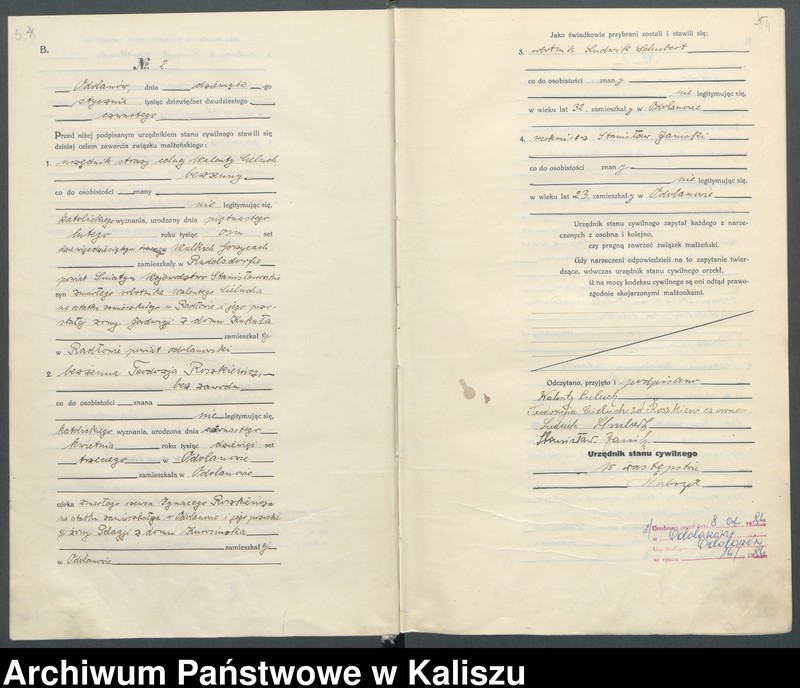 B.
№ 2
Odolanów, dnia dziewiąte -go
stycznia tysiąc dziewięćset dwudziestego
czwartego
Przed niżej podpisanym urzędnikiem stanu cywilnego stawili się
dzisiaj celem zawarcia związku małżeńskiego:
1. urzędnik straży celnej Walenty Cieluch
bezżenny
co do osobistości znany
nie legitymując się,
katolickiego wyznania, urodzony dnia piętnastego
lutego roku tysiąc osm set
dziewięćdziesiątego Wielkich Gorzycach
zamieszkały w Rudolsdorfie
powiat Województwo Stanisławowskie
syn zmarłego robotnika Walentego Cielucha
na ostatku zamieszkałego w Radłowie i jego pozo-
stałej żony Jadwigi z domu Kukuła
zamieszkał ej
w Radłowie powiat odolanowski
2. bezżenna Teodozja Roszkiewicz,
bez zawodu
co do osobistości znana
nie legitymując się,
katolickiego wyznania, urodzona dnia
kwietnia roku tysiąc dziewięć set
trzeciego w Odolanowie
zamieszkała w Odolanowie
córka zmarłego szewca Ignacego Roszkiewicza
na ostatku zamieszkałego w Odolanowie i jego pozostał
ej żony Pelagji z domu
zamieszkał ej
w Odolanowie
Jako świadkowie przybrani zostali i stawili się:
3. robotnik Ludwik Schubert
co do osobistości znany
nie legitymując się,
w wieku lat 32, zamieszkały w Odolanowie
4. Stanisław Janicki
co do osobistości znany
nie legitymując się,
w wieku lat 23, zamieszkały w Odolanowie
Urzędnik stanu cywilnego zapytał każdego z narze-
czonych z osobna i kolejno,
czy pragną zawrzeć związek małżeński.
Gdy narzeczeni odpowiedzieli na to zapytanie twier-
dząco, wówczas urzędnik stanu cywilnego orzekł,
iż na mocy kodeksu cywilnego są oni odtąd prawo-
zgodnie skojarzonymi małżonkami.
Odczytano, przyjęto i podpisano
Walenty Cieluch
Teodozja Cieluch zd Roszkiewiczowna
Ludwik
Stanisław Janicki
Urzędnik stanu cywilnego
W zastępstwie
8 84
Odolanów
Odolanów
Archiwum Państwowe w Kaliszu